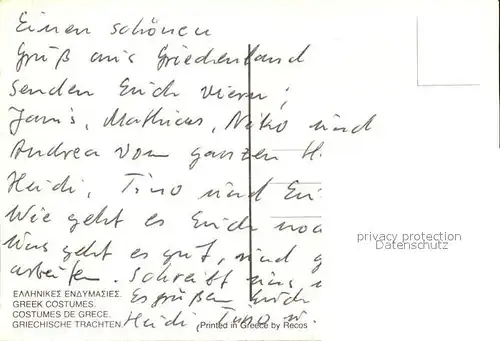 Einen schönen
Gruß aus Griechenland
senden Euch viern;
Janis, Mathias, Niko und
Andrea vom ganzen H.
Heidi, Tino und Eri
Wie geht es Euch noc
Uns geht es gut, sind g
arbeiten. Schreibt uns
ΕΛΛΗΝΙΚΕΣ ΕΝΔΥΜΑΣΙΕΣ.
GREEK COSTUMES.
COSTUMES DE GRECE.
GRIECHISCHE TRACHTEN.
Es grüßen Euch
Heidi, Tino u.
Printed in Greece by Recos
privacy protection
Datenschutz